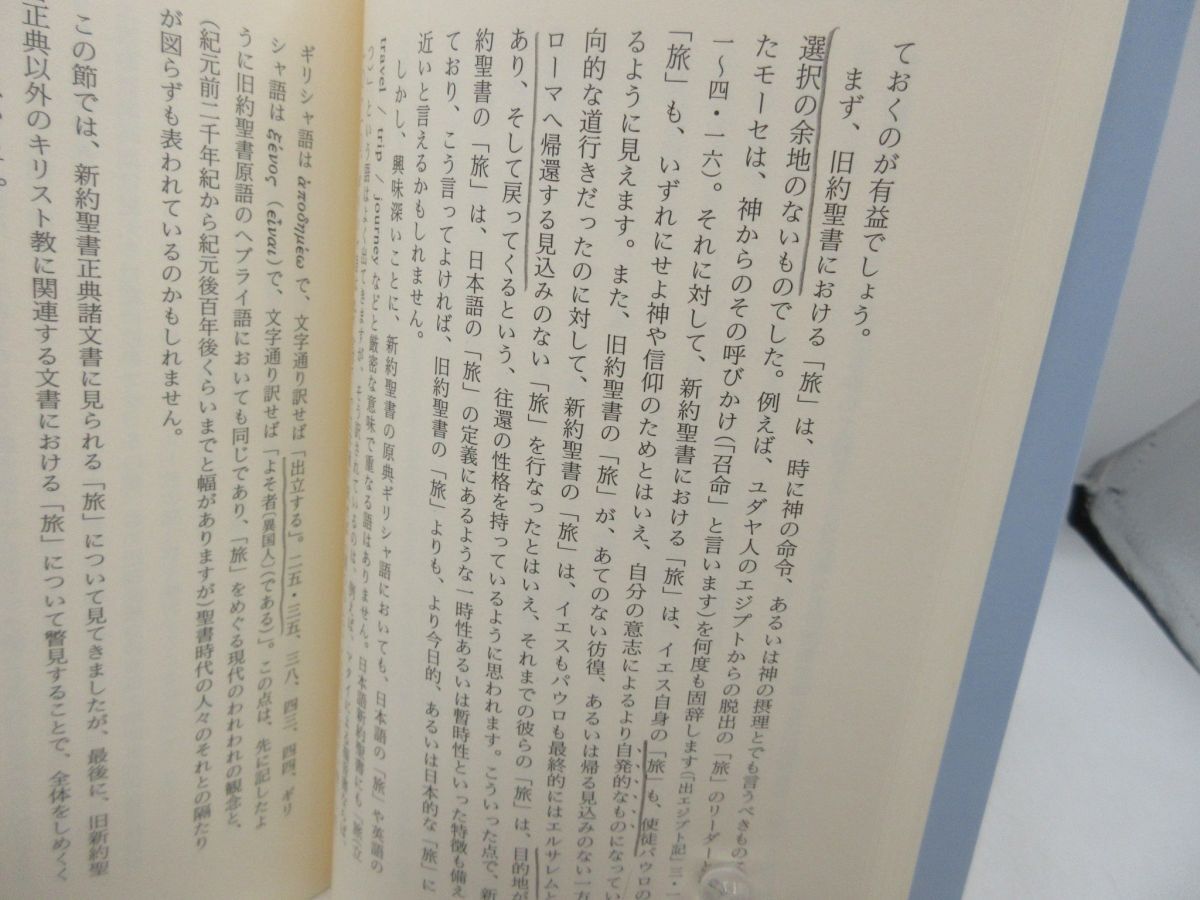 ておくのが有益でしょう。
まず、旧約聖書における「旅」は、時に神の命令、あるいは神の摂理とでも言うべきもので
選択の余地のないものでした。例えば、ユダヤ人のエジプトからの脱出の「旅」のリーダーと
たモーセは、神からのその呼びかけ(「召命」と言います)を何度も固辞します(「出エジプト記」三・一
一～四・一六)。それに対して、新約聖書における「旅」は、イエス自身の「旅」も、使徒パウロの
「旅」も、いずれにせよ神や信仰のためとはいえ、自分の意志によるより自発的なものになってい
るように見えます。また、旧約聖書の「旅」が、あてのない彷徨、あるいは帰る見込みのない一方
向的な道行きだったのに対して、新約聖書の「旅」は、イエスもパウロも最終的にはエルサレムと
ローマへ帰還する見込みのない「旅」を行なったとはいえ、それまでの彼らの「旅」は、目的地が
あり、そして戻ってくるという、往還の性格を持っているように思われます。こういった点で、新
約聖書の「旅」は、日本語の「旅」の定義にあるような一時性あるいは暫時性といった特徴も備え
ており、こう言ってよければ、旧約聖書の「旅」よりも、より今日的、あるいは日本的な「旅」に
近いと言えるかもしれません。
しかし、興味深いことに、新約聖書の原典ギリシャ語においても、日本語の「旅」や英語の
travel / trip / journey などと厳密な意味で重なる語はありません。日本語新約聖書にも「旅立
という語はよく出てきますが、そう訳されているのは、例えば、
ギリシャ語は ἀποδημέω で、文字通り訳せば「出立する」。二五・三五、三八、四三、四四、ギリ
シャ語は ξένος (εἶναι) で、文字通り訳せば「よそ者(異国人)(である)」。この点は、先に記したよ
うに旧約聖書原語のヘブライ語においても同じであり、「旅」をめぐる現代のわれわれの観念と、
(紀元前二千年紀から紀元後百年後くらいまでと幅がありますが)聖書時代の人々のそれとの隔たり
が図らずも表われているのかもしれません。
この節では、新約聖書正典諸文書に見られる「旅」について見てきましたが、最後に、旧新約聖
正典以外のキリスト教に関連する文書における「旅」について瞥見することで、全体をしめくく